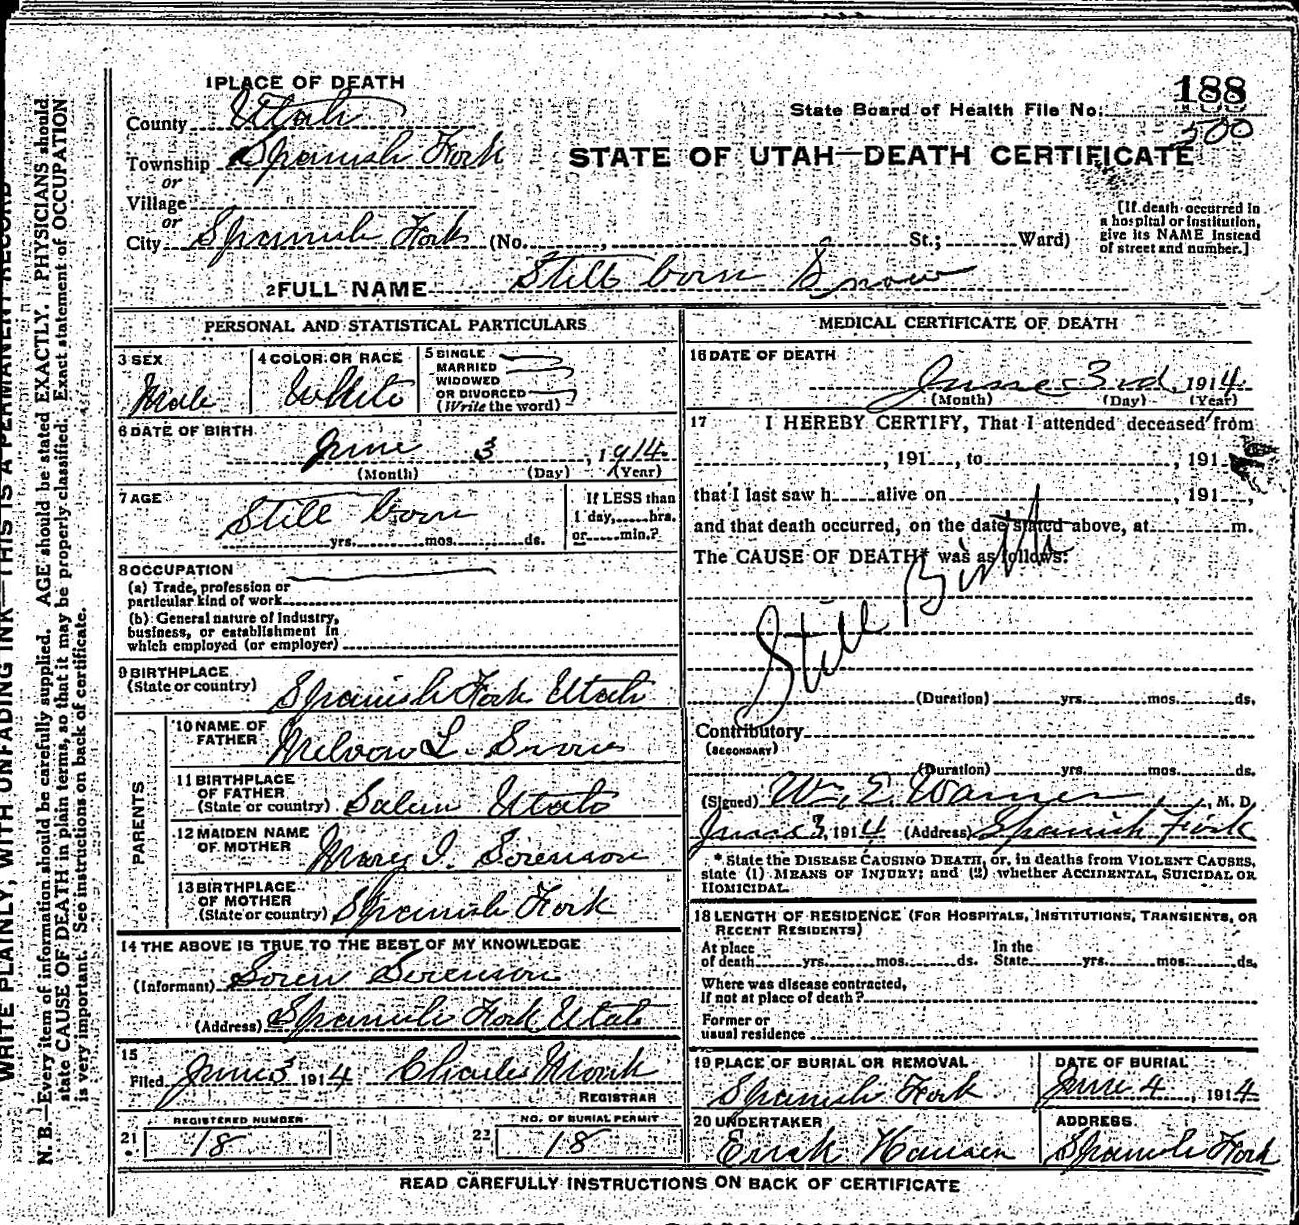 1 PLACE OF DEATH
188
State Board of Health File No.
500
County Utah
Township Spanish Fork
or
Village
or
City Spanish Fork (No. , St.; Ward)
STATE OF UTAH—DEATH CERTIFICATE
[If death occurred in
a hospital or institution,
give its NAME instead
of street and number.]
2 FULL NAME Still born Snow
PERSONAL AND STATISTICAL PARTICULARS
3 SEX
Male
4 COLOR OR RACE
White
5 SINGLE
MARRIED
WIDOWED
OR DIVORCED
(Write the word)
6 DATE OF BIRTH
June 3, 1914
(Month) (Day) (Year)
7 AGE
Still born
yrs. mos. ds.
If LESS than
1 day, hrs.
or min.?
8 OCCUPATION
(a) Trade, profession or
particular kind of work
(b) General nature of Industry,
business, or establishment in
which employed (or employer)
9 BIRTHPLACE
(State or country) Spanish Fork Utah
PARENTS
10 NAME OF
FATHER L. Snow
11 BIRTHPLACE
OF FATHER
(State or country) Salem Utah
12 MAIDEN NAME
OF MOTHER Mary I. Sorenson
13 BIRTHPLACE
OF MOTHER
(State or country) Spanish Fork
14 THE ABOVE IS TRUE TO THE BEST OF MY KNOWLEDGE
(Informant) Soren Sorenson
(Address) Spanish Fork Utah
15
Filed June 3 1914 Charles Monk
REGISTRAR
21 REGISTERED NUMBER
18
22 NO. OF BURIAL PERMIT
18
MEDICAL CERTIFICATE OF DEATH
16 DATE OF DEATH
June 3rd, 1914
(Month) (Day) (Year)
17 I HEREBY CERTIFY, That I attended deceased from
, 191 , to , 191
that I last saw h alive on , 191 ,
and that death occurred, on the date stated above, at m.
The CAUSE OF DEATH* was as follows:
Still Birth
(Duration) yrs. mos. ds.
Contributory
(SECONDARY)
(Duration) yrs. mos. ds.
(Signed) Wm. E. Warner, M. D.
June 3, 1914 (Address) Spanish Fork
* State the DISEASE CAUSING DEATH, or, in deaths from VIOLENT CAUSES,
state (1) MEANS OF INJURY; and (2) whether ACCIDENTAL, SUICIDAL OR
HOMICIDAL.
18 LENGTH OF RESIDENCE (FOR HOSPITALS, INSTITUTIONS, TRANSIENTS, OR
RECENT RESIDENTS)
At place
of death yrs. mos. ds.
In the
State yrs. mos. ds.
Where was disease contracted,
If not at place of death?
Former or
usual residence
19 PLACE OF BURIAL OR REMOVAL
Spanish Fork
DATE OF BURIAL
June 4, 1914
20 UNDERTAKER
Hansen
ADDRESS
Spanish Fork
READ CAREFULLY INSTRUCTIONS ON BACK OF CERTIFICATE
WRITE PLAINLY, WITH UNFADING INK—THIS IS A PERMANENT RECORD
N. B.—Every item of information should be carefully supplied. AGE should be stated EXACTLY. PHYSICIANS should
state CAUSE OF DEATH in plain terms, so that it may be properly classified. Exact statement of OCCUPATION
is very important. See instructions on back of certificate.